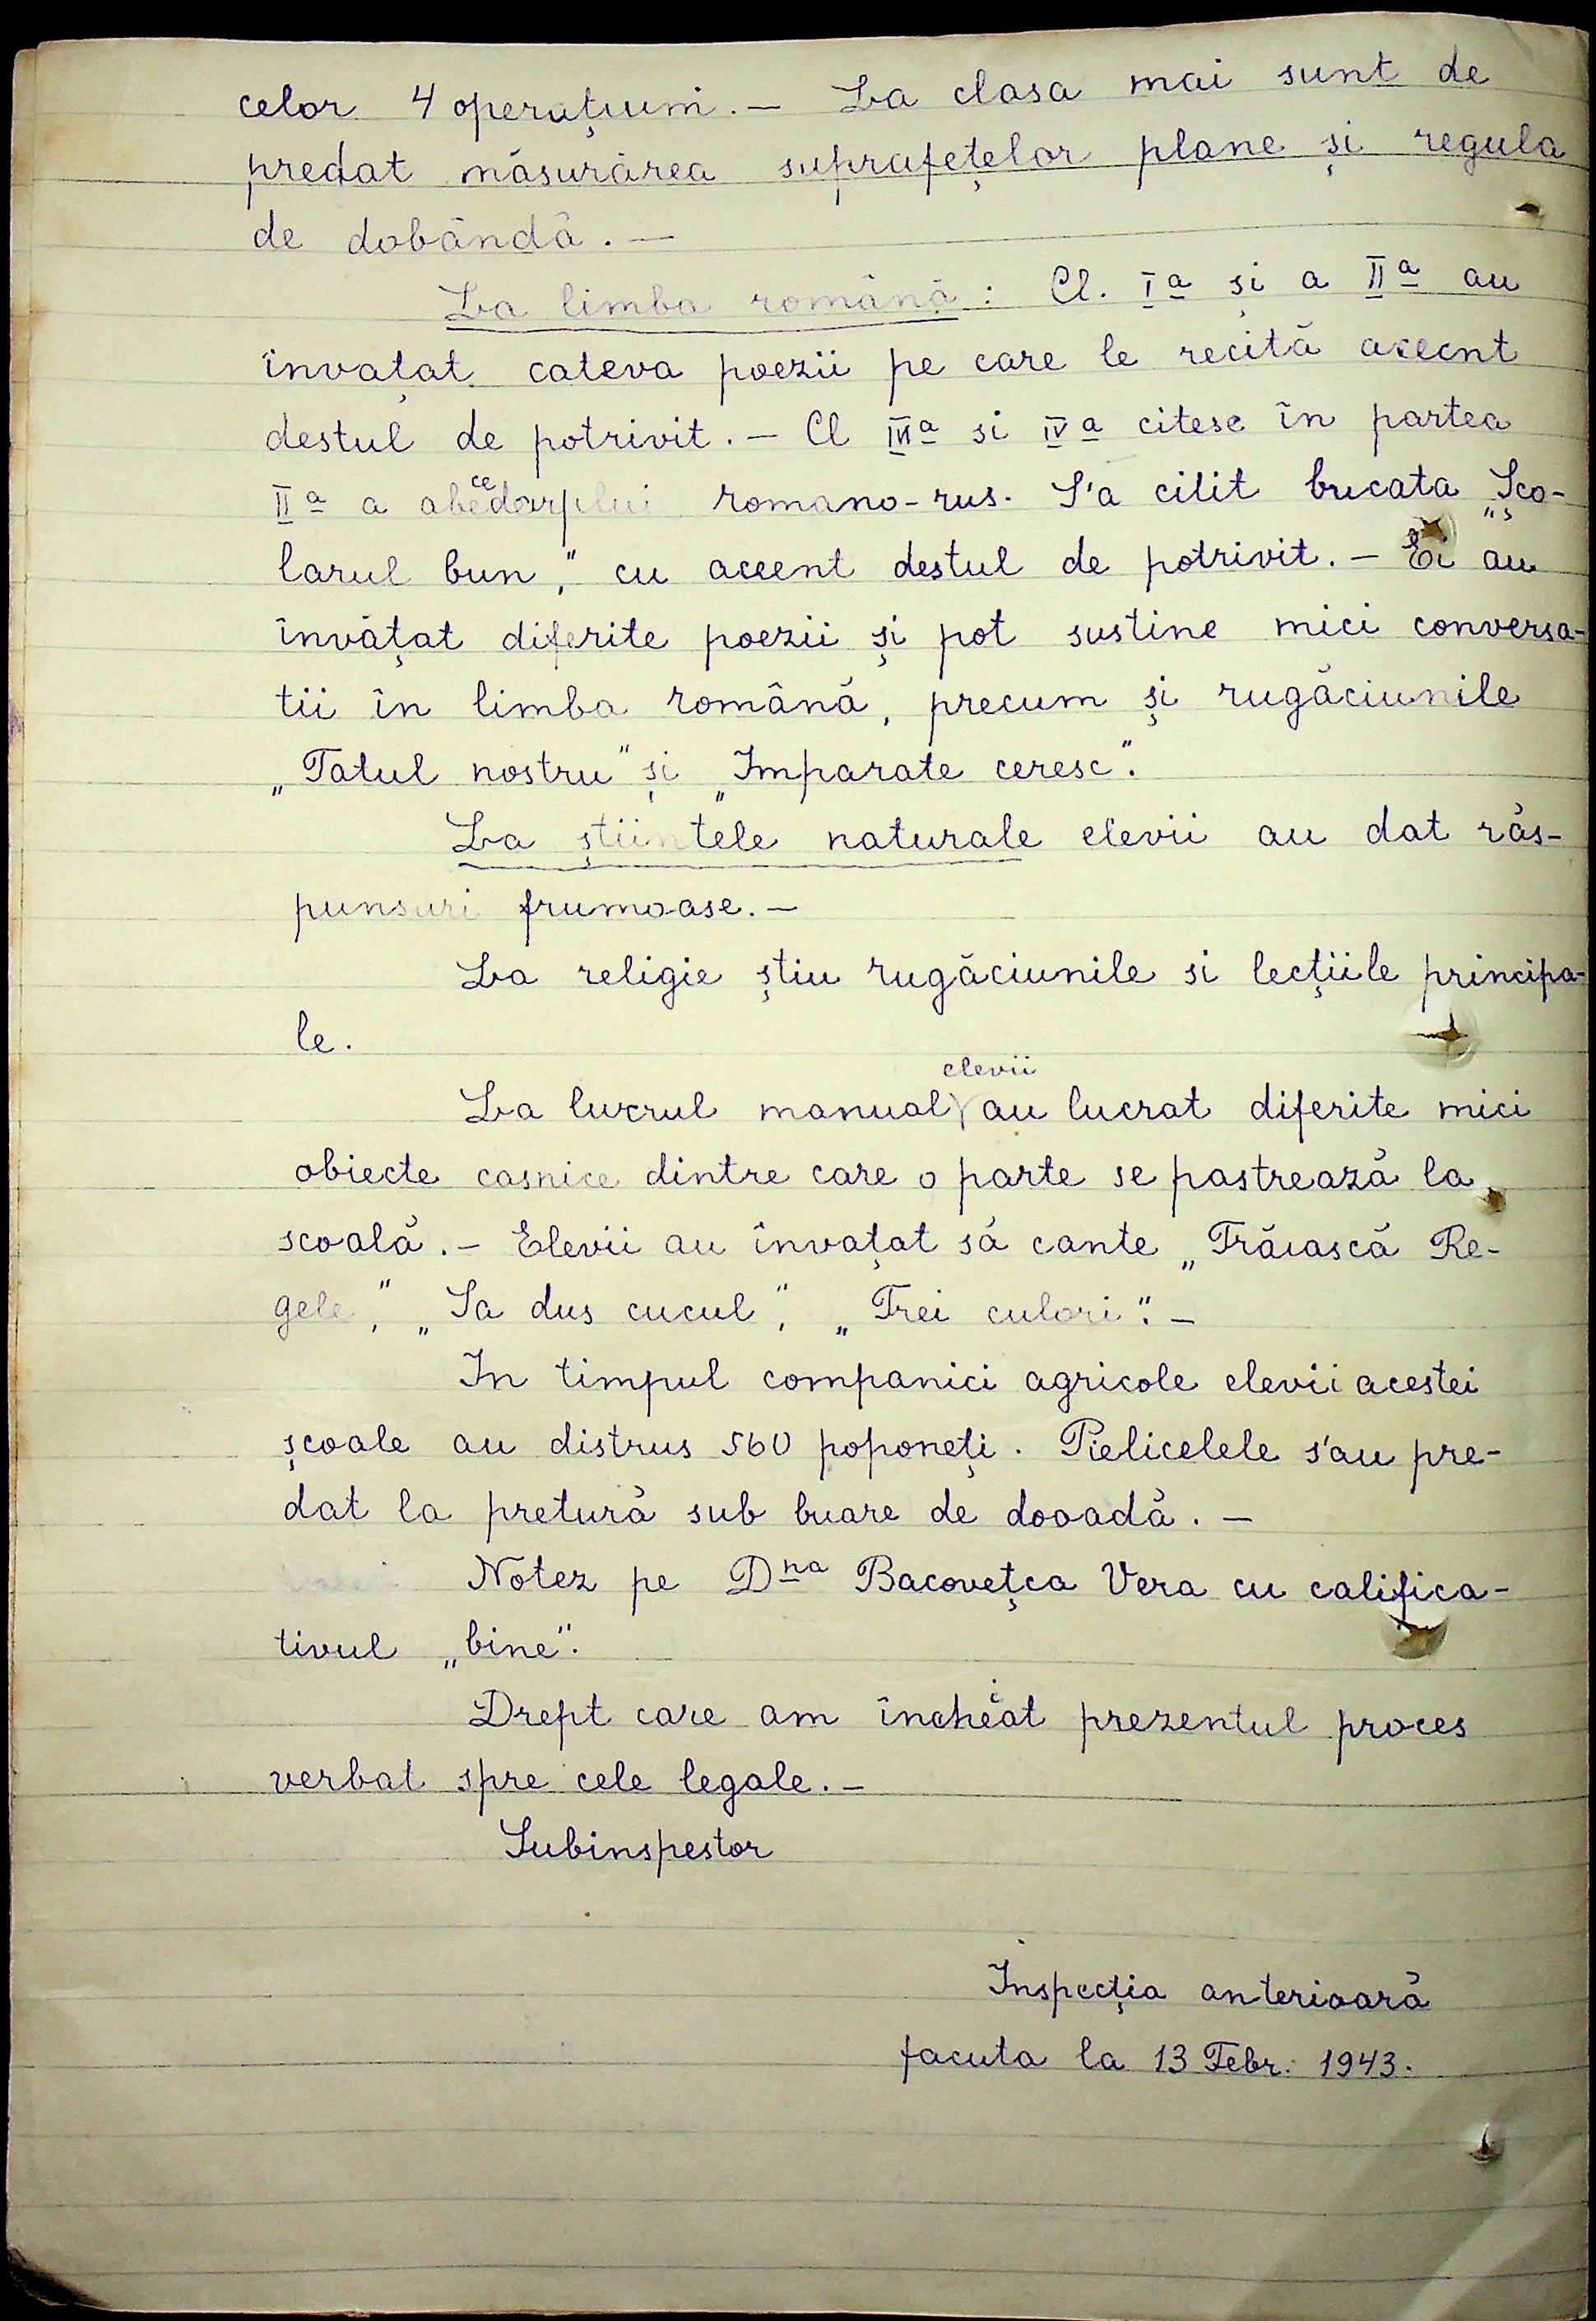 celor 4 operaţiuni. — La clasa mai sunt de
predat măsurarea suprafeţelor plane şi regula
de dobândă. —
La limba română: Cl. Iª şi a IIª au
învaţat cateva poezii pe care le recită accent
destul de potrivit. — Cl IIIª si IVª citesc în partea
IIª a abecedarului romano-rus. S'a citit bucata „Şco-
larul bun," cu accent destul de potrivit. — Ei au
învăţat diferite poezii şi pot sustine mici conversa-
tii în limba română, precum şi rugăciunile
„Tatul nostru" şi „Imparate ceresc".
La ştiintele naturale elevii au dat răs-
punsuri frumoase. —
La religie ştiu rugăciunile si lecţiile principa-
le.
La lucrul manual elevii au lucrat diferite mici
obiecte casnice dintre care o parte se pastrează la
scoală. — Elevii au învaţat să cante „Trăiască Re-
gele," „Sa dus cucul", „Trei culori". —
In timpul companici agricole elevii acestei
şcoale au distrus 560 poponeţi. Pielicelele s'au pre-
dat la pretură sub buare de dovadă. —
Notez pe Dna Bacoveţca Vera cu califica-
tivul „bine".
Drept care am încheiat prezentul proces
verbal spre cele legale. —
Subinspestor
Inspecţia anterioară
facuta la 13 Febr. 1943.